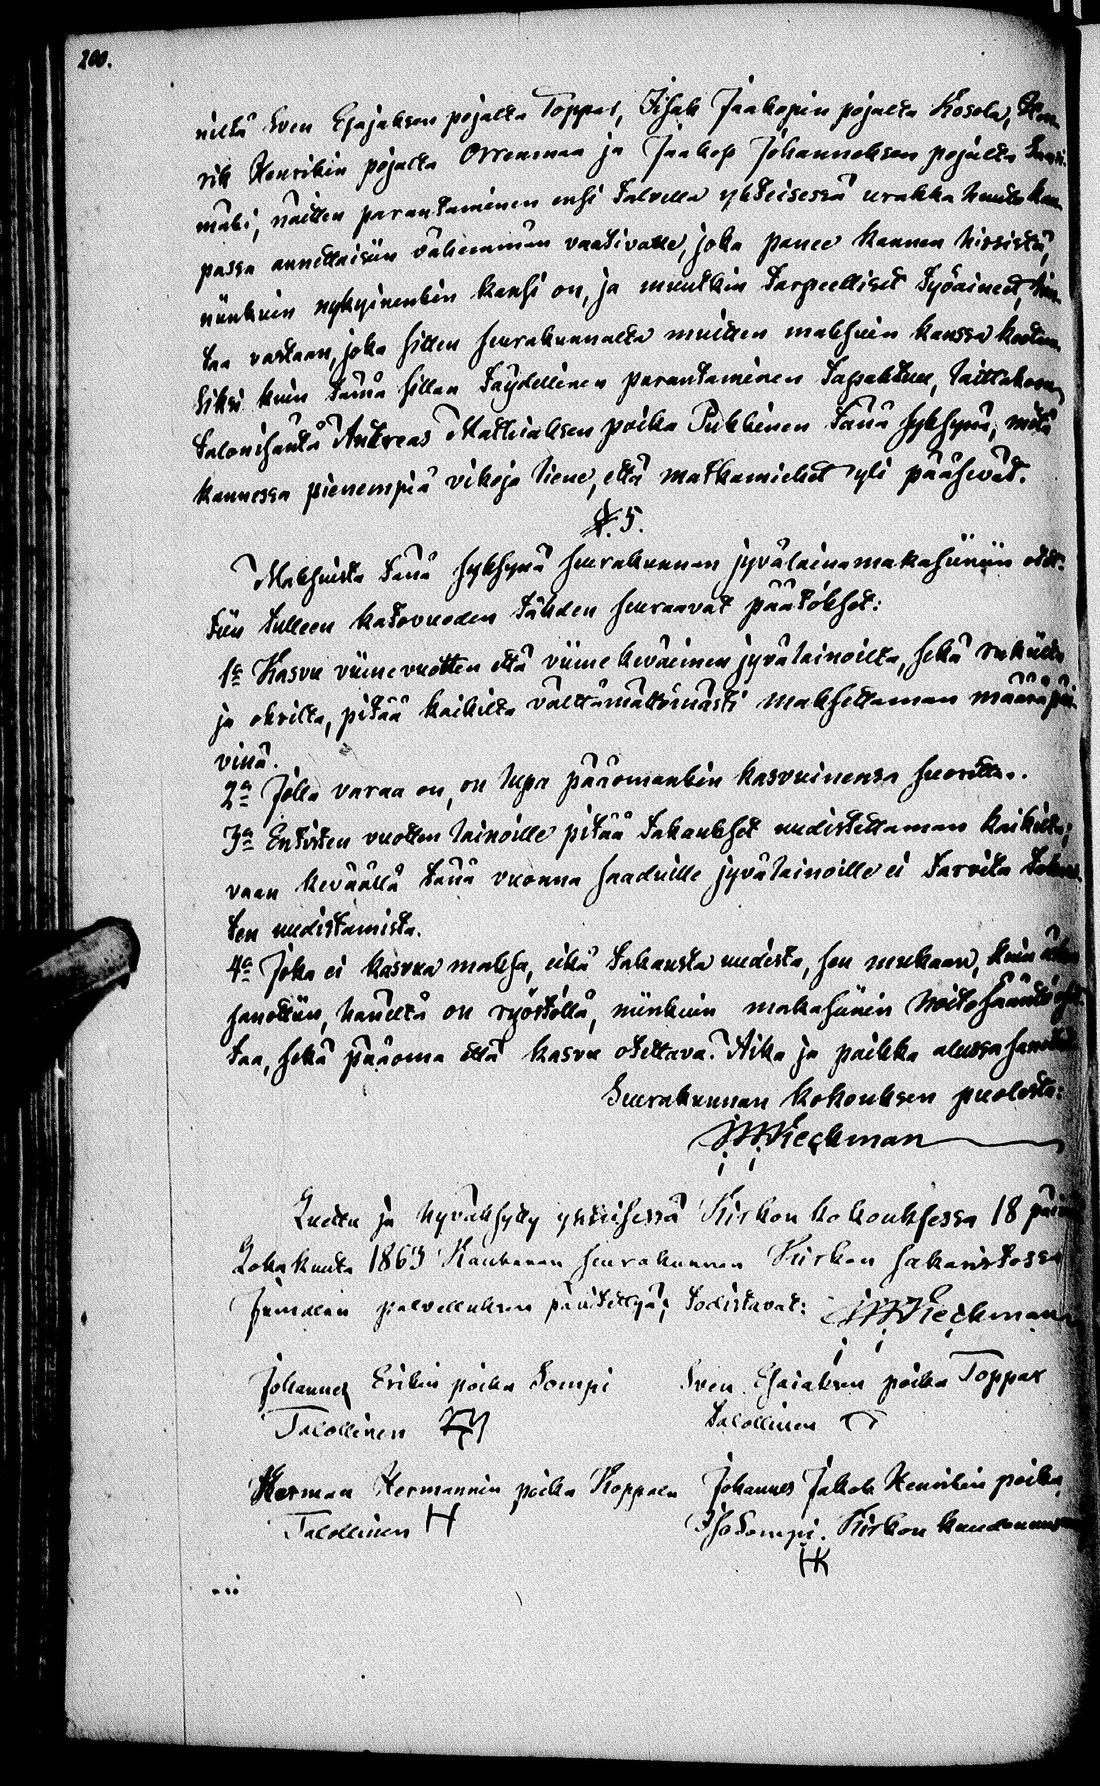 200.
niltä Sven Esajaksen pojalta Toppar, Iisak Jaakopin pojalta Kosola, Hen-
rik Henrikin pojalta Orrenmaa ja Jaakop Johanneksen pojalta
mäki, näitten parantaminen ensi talvella yhteisessä urakka huuto kau-
passa annettaisiin vähemmän vaativalle, joka panee kannen hirsistä,
niinkuin nykyinenkin kansi on, ja muutkin tarpeelliset työaineet, hin-
taa vastaan, joka sitten seurakunnalta muitten maksuin kanssa kootaan.
Siksi kuin tämä sillan täydellinen parantaminen tapahtuu, laittakoon
talonisäntä Andreas Mathiaksen poika Pukkinen tänä syksynä, mitä
kannessa pienempiä vikoja lienee, että matkamiehet yli pääsevät.
§. 5.
Maksuista tänä syksynä seurakunnan jyvälainamakasiiniin otet-
tiin tulleen katovuoden tähden seuraavat päätökset:
1o Kasvu viimevuotten että viime keväinen jyvälainoilta, sekä rukiilta
ja ohrilta, pitää kaikilta välttämättömästi maksettaman määräpäi-
vinä.
2o Jolla varaa on, on lupa pääomankin kasvuinensa suorittaa.
3o Entisten vuotten lainoille pitää takaukset uudistettaman kaikilta;
vaan keväällä tänä vuonna saaduille jyvälainoille ei tarvita takaus-
ten uudistamista.
4o Joka ei kasvua maksa, eikä takausta uudista, sen mukaan, kuin
sanottiin, häneltä on ryöstöllä, niinkuin makasiinin hoitosääntö
taa, sekä pääoma että kasvu otettava. Aika ja paikka alussa sanottu.
Seurakunnan kokouksen puolesta:
Keckman
Luettu ja hyväksytty yhteisessä Kirkon kokouksessa 18 päivä
Lokakuuta 1863 Kauhavan seurakunnan Kirkon sakaristossa
Jumalan palvelluksen päätettyä; todistavat: Keckman
Johannes Erikin poika Sompi Sven Esaiaksen poika Toppar
Talollinen talollinen
Herman Hermannin poika Koppala Johannes Jakob Henrikin poika
Talollinen H IsoSompi. Kirkon
HK